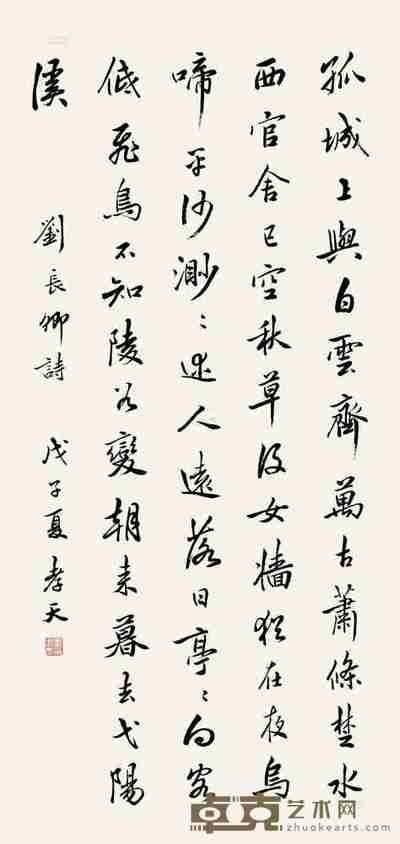 孤城上與白雲齊萬古蕭條楚水
西官舍已空秋草没女墻猶在夜烏
啼平沙渺〻迷人遠落日亭〻向客
低飛鳥不知陵谷變朝来暮去弋陽
溪
劉長卿詩 戊子夏 孝天
卓克艺术网
zhuokearts.com